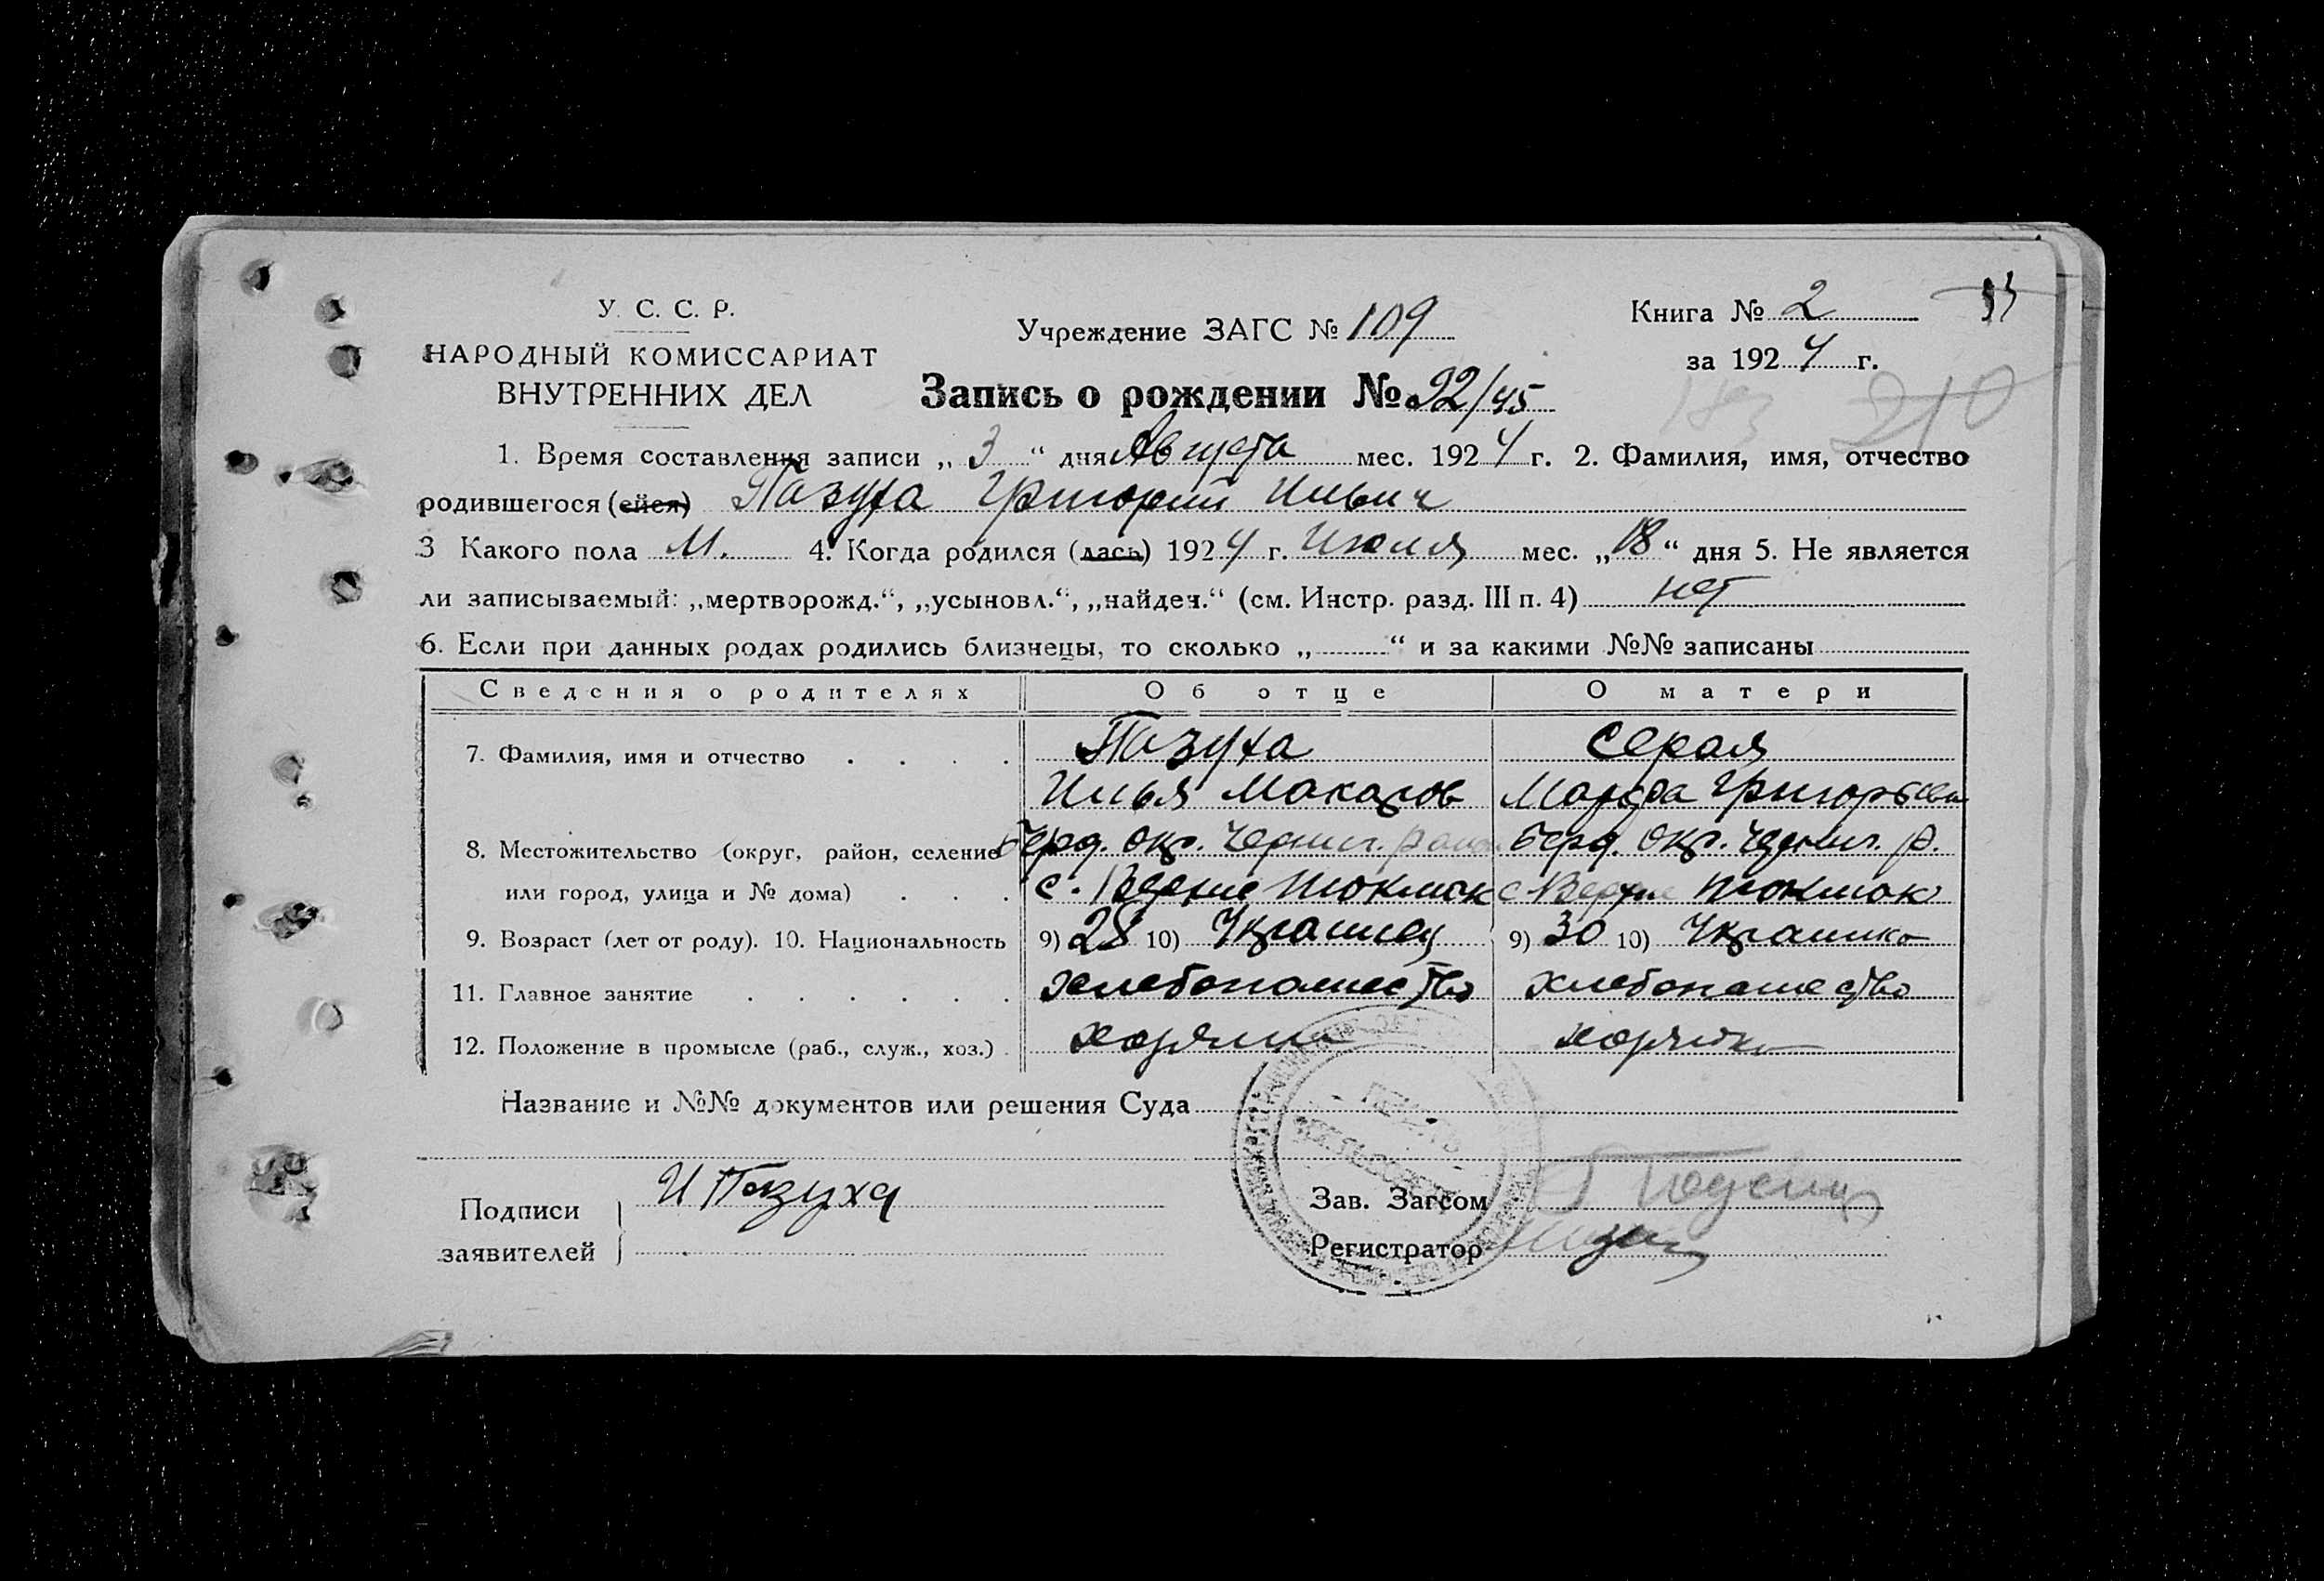 У. С. С. Р.
НАРОДНЫЙ КОМИССАРИАТ
ВНУТРЕННИХ ДЕЛ
Учреждение ЗАГС № 109
Книга № 2
за 1924 г.
Запись о рождении № 92/45
210
1. Время составления записи „ 3 “ дня Августа мес. 1924 г. 2. Фамилия, имя, отчество
родившегося (ейся) Пазуха Григорий Ильич
3 Какого пола М. 4. Когда родился (лась) 1924 г. Июля мес. „18“ дня 5. Не является
ли записываемый: „мертворожд.“, „усыновл.“, „найден.“ (см. Инстр. разд. III п. 4) нет
6. Если при данных родах родились близнецы, то сколько „ “ и за какими №№ записаны
Сведения о родителях Об отце О матери
7. Фамилия, имя и отчество Пазуха Серая
Илья Макаров Марфа Григорьевн
8. Местожительство (округ, район, селение Берд. окр. Черниг. район Берд. окр. Черниг. р.
или город, улица и № дома) с. Верхне Токмак с Верхне Токмак
9. Возраст (лет от роду). 10. Национальность 9) 28 10) Украинец 9) 30 10) Украинка
11. Главное занятие хлебопашество хлебопашество
12. Положение в промысле (раб., служ., хоз.) хозяин хозяйка
Название и №№ документов или решения Суда
Подписи И Пазуха
заявителей
Зав. Загсом
Регистратор